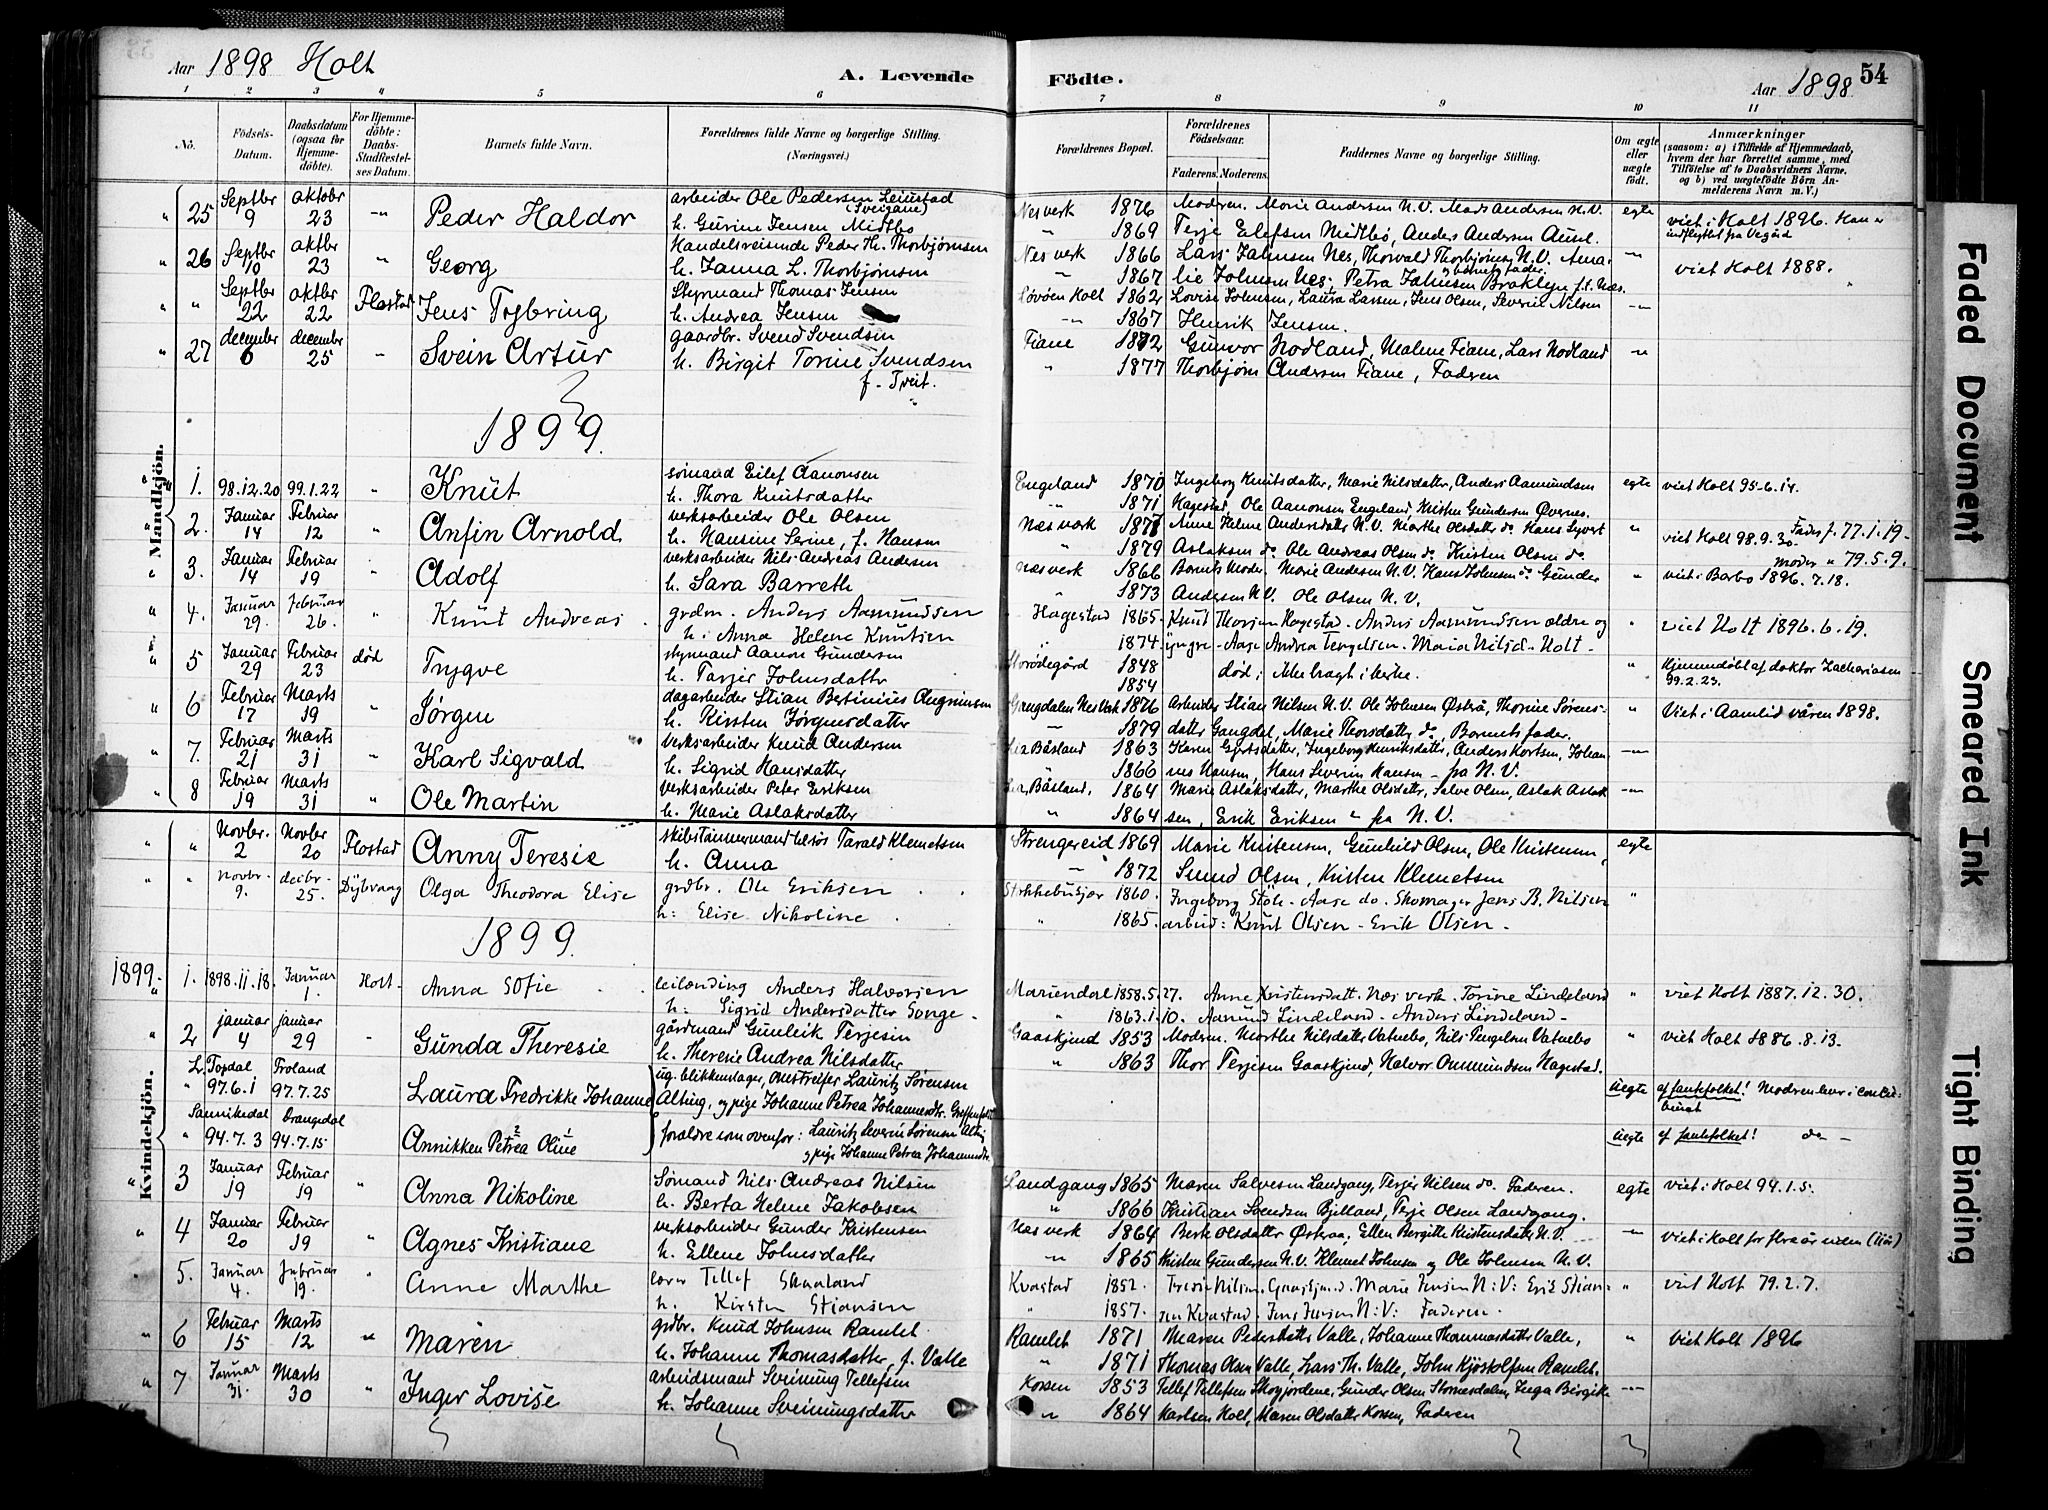 Aar 1898 Holt
A. Levende Födte.
Aar 1898 54
1 2 3 4 5 6 7 8 9 10 11
No.
Födsels-Datum.
Daabsdatum (ogsaa for Hjemmedöbte).
For Hjemmedöbte: Daabs-Stadfæstelses Datum.
Barnets fulde Navn.
Forældrenes fulde Navne og borgerlige Stilling. (Næringsvei.)
Forældrenes Bopæl.
Forældrenes Födselsaar.
Faderens. Moderens.
Faddernes Navne og borgerlige Stilling.
Om ægte eller uægte födt.
Anmærkninger (saasom: a) i Tilfælde af Hjemmedaab, hvem der har forrettet samme, med Tilföielse af to Daabsvidners Navne, og b) ved uægtefödte Börn Anmelderens Navn m. V.)
Mandkjön.
25 Septbr 9 oktober 23 Peder Haldor arbeider Ole Pedersen
h. Gurine Jensen Midtbo Nes verk 1876 1869 Modren. Marie Andersen N.V. Mads Andersen N.V.
Terje Eilefsen Midtbö, Anders Andersen egte viet i Holt 1896. Han er
indflyttet fra Vegård
26 Septbr 10 oktbr 23 Georg Handelsreisende Peder Th. Thorbjørnsen
h. Janna L. Thorbjørnsen Nes verk 1866 1867 Lars Johnsen Nes, Thorvald Thorbjørnsen N.V. Ama-
lie Johnsen Nes, Petra Johnsen Brooklyn viet Holt 1888.
Septbr 22 oktbr 22 Flostad Jens Styrmand Thomas Jensen
h. Andrea Jensen Holt 1862 1867 Lovise Johnsen, Laura Lassen, Jens Olsen, Severin Nilsen
Henrik Jensen.
27 december 6 december 25 Svein Artur gaardbr. Svend Svendsen
h. Birgit Torine Svendsen
f. Tveit. Fiane 1872 1877 Gunvor Nodland, Malene Fiane, Lars Nodland
Thorbjørn Andersen Fiane, Faderen
1899.
1. 98.12.20 99.1.22 Knut sömand Eilef Aanonsen
h. Thora Knutsdatter Engeland 1870 1871 Ingeborg Knutsdatter, Marie Nilsdatter, Anders Aamundsen
Hagestad, Ole Aanonsen Engeland, Kristen Gundersen Øvernes. egte viet Holt 95-6.14.
2. Januar 14 Februar 12 Anfin Arnold verksarbeider Ole Olsen
h. Hansine Serine, f. Hansen Næs værk 1877 1879 Anne Helene Andersdatter N.V. Marthe Olsdatter do. Hans Syvert
Aslaksen do. Ole Andreas Olsen do. Kristen Olsen do viet Holt 98.9.30. Fader f. 77.1.19.
Moder " 79.5.9.
3. Januar 14 Februar 19 Adolf verksarbeider Nils Andreas Andersen
h. Sara Barreth Næs verk 1866 1873 Barnets Moder. Marie Andersen N.V. Hans Johnsen do. Gunder
Andersen N.V. Ole Olsen N.V. viet i Barbo 1896.7.18.
4. Januar 29. Februar 26. Knut Andreas grdm. Anders Aamundsen
h: Anna Helene Knutsen Hagestad 1865. 1874 Knut Thorsen Hagestad - Anders Aamundsen ældre og
yngre - Aase Andrea Tengelsen - Maria Nilsd - Holt - viet Holt 1896.6.19.
5 Januar 29 Februar 23 død Trygve styrmand Aanon Gundersen
h. Tarjer Johnsdatter 1848 1854 død; ikke bragt i kirke. Hjemmedøbt af doktor Zachariasen
99.2.23.
6 Februar 17 Marts 19 Jørgen dagarbeider Stian Bertinius
h. Kirsten Jørgensdatter Gangdalen Nes Verk 1876 1879 Arbeider Stian Nilsen N.V. Ole Johnsen Østerå, Thorine Sørens-
datter Gangdal, Marie Thorsdatter do, Barnets fader. Viet i Aamlid våren 1898.
7. Februar 21 Marts 31 Karl Sigvald Verksarbeider Knud Andersen
h. Sigrid Hansdatter Båsland 1863 1866 Karen Gjertsdatter, Ingeborg Henriksdatter, Anders Kortsen, Johan-
nes Hansen, Hans Severin Hansen - fra N.V.
8 Februar 19 Marts 31 Ole Martin verksarbeider Peter Eriksen
h. Marie Aslaksdatter Båsland, 1864 1864 Marie Aslaksdatter, Marthe Olsdatter, Salve Olsen, Aslak Aslak
sen, Erik Eriksen - fra N.V.
Kvindekjön.
Novbr. 2 Novbr 20 Flostad Anny Teresie skibstømmermand Tarald Klemetsen
h. Anna Strengereid 1869 1872 Marie Kristensen, Gunhild Olsen, Ole Kristensen,
Svend Olsen, Kristen Klemetsen egte
novbr. 9. decbr. 25. Dybvaag Olga Theodora Elise grdbr. Ole Eriksen
h: Elise Nikoline 1860. 1865. Ingeborg Støle - Aase do. Skomager Jens B. Nilsen
arbeid: Knut Olsen - Erik Olsen -
1899.
1899. 1. 1898.11.18. Januar 1. Holt - Anna Sofie leilænding Anders Halvorsen
h: Sigrid Andersdatter Songe - Mariendal 1858.5.27. 1863.1.10. Anne Kristensdatt. Næs verk. Torine Lindeland
Aamund Lindeland - Anders Lindeland - viet Holt 1887.12.30.
2 januar 4 januar 29 Gunda Theresie gårdmand Gunleik Terjesen
h. Theresie Andrea Nilsdatter Gaaskjend 1853 1863 Modren. Marthe Nilsdatter Vatnebo, Nils Tengelsen Vatnebo
Thor Terjesen Gaaskjend, Halvor Ommundsen Hagestad. viet Holt 1886.8.13.
L. Topdal 97.6.1 Froland 97.7.25 Laura Fredrikke Johanne ug. blikkenslager, omstreifer Lauritz Sørensen
Alting, og pige Johanne Petrea Johannesdtr. Uegte af fantefolket! Modren
Sannikedal 94.7.3 Drangedal 94.7.15 Annikken Petrea Oline forældre som ovenfor: Lauritz Severin Sørensen Alting
og pige Johanne Petrea Johannesdtr. Uegte af fantefolket! do -
3 Januar 19 Februar 19 Anna Nikoline Sömand Nils Andreas Nilsen
h. Berta Helene Jakobsen Landgang 1865 1866 Maren Salvesen Landgang, Terjer Nilsen do. Faderen.
Kristian Svendsen Bjelland, Terje Olsen Landgang. egte viet i Holt 94.1.5.
4 Januar 20 Februar 19 Agnes Kristiane verksarbeider Gunder Kristensen
h. Ellene Johnsdatter Næs verk 1864 1865 Berte Olsdatter Østeraa, Ellen Birgitte Kristensdatter N.V.
Kristen Gundersen N.V. Klemet Johnsen og Ole Johnsen N.V. viet i Holt for flere år siden
5. Januar 4. Februar 19. Anne Marthe lærer Tellef Skaaland
h. Kirsten Stiansen Kvastad 1852. 1857. Nilsen Marie Jensen N:V: Erik Stian-
sen Kvastad. Jens Jensen N:V: Faderen. viet Holt 79.2.7.
6 Februar 15 Marts 12 Maren grdbr. Knud Johnsen Ramlet
h. Johanne Thomasdatter, f. Valle Ramlet 1871 1871 Maren Pedersdatter Valle, Johanne Thommasdatter Valle,
Thomas Olsen Valle, Lars Th. Valle, John Kjøstolfsen Ramlet. Viet Holt 1896
7 Januar 31. Marts 30 Inger Lovise arbeidsmand Sveinung Tellefsen
h. Johanne Sveinungsdatter Korsen 1853 1864 Tellef Tellefsen Skogjordene, Gunder Olsen Inga Birgitte
Karlsen Holt, Maren Olsdatter Korsen, Faderen
Faded Document
Smeared Ink
Tight Binding